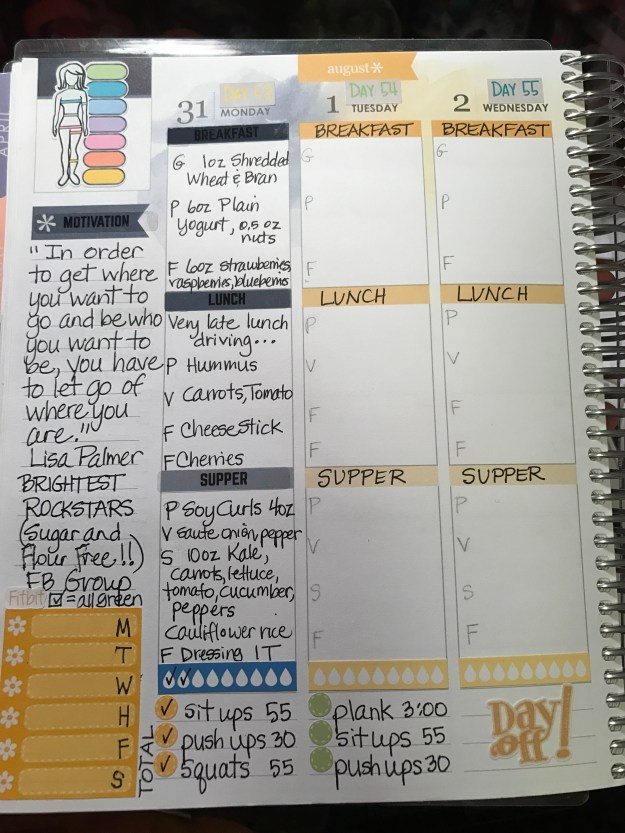 APRIL
august*
31 DAY 53 MONDAY
BREAKFAST
G 1oz Shredded
Wheat & Bran
P 6oz Plain
Yogurt, 0.5 oz
nuts
F 6oz strawberries,
raspberries, blueberries
LUNCH
Very late lunch
driving...
P Hummus
V Carrots, Tomato
F Cheese stick
F Cherries
SUPPER
P Soy Curls 4oz
V saute onion, pepper
S 10oz Kale,
carrots, lettuce,
tomato, cucumber,
peppers
Cauliflower rice
F Dressing 1T
sit ups 55
push ups 30
Squats 55
1 DAY 54 TUESDAY
BREAKFAST
G
P
F
LUNCH
P
V
F
F
SUPPER
P
V
S
F
plank 3:00
sit ups 55
push ups 30
2 DAY 55 WEDNESDAY
BREAKFAST
G
P
F
LUNCH
P
V
F
F
SUPPER
P
V
S
F
Day off!
* MOTIVATION
"In order
to get where
you want to
go and be who
you want to
be, you have
to let go of
where you
are."
Lisa Palmer
BRIGHTEST
ROCKSTARS
(Sugar and
Flour Free!!)
FB Group
Fitbit ☑ = all green
M
T
W
H
F
S
TOTAL